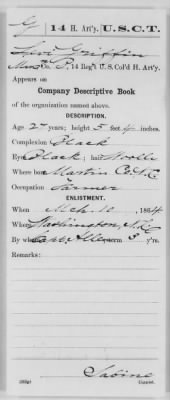 G | 14 H. Art'y. | U.S.C.T.
Levi Griffin
P, 14 Reg't U. S. Col'd H. Art'y.
Appears on
Company Descriptive Book
of the organization named above.
DESCRIPTION.
Age 27 years; height 5 feet 4 inches.
Complexion Black
Eyes Black; hair Woolly
Where born Martin Co. N.C.
Occupation Farmer
ENLISTMENT.
When Mch. 10, 1864
Where Washington, N.C.
By whom Capt. Allen; term 3 y'rs.
Remarks:
Sabine
Copyist.